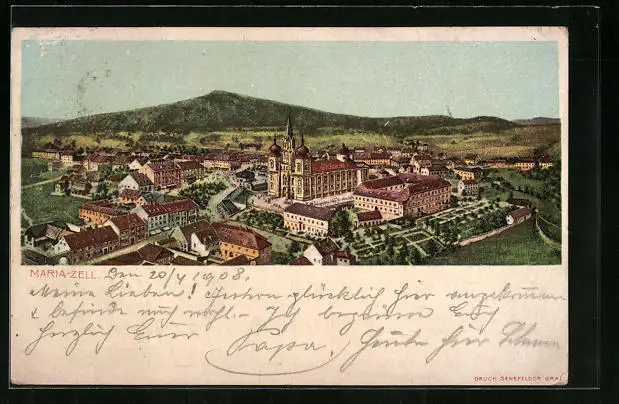 MARIA-ZELL. Den 20/4 1908.
Meine Lieben! Gestern glücklich hier angekommen
& befinde mich wohl. - Ich begrüsse Euch
herzlich Euer Papa. Heute hier
DRUCK SENEFELDER GRAZ